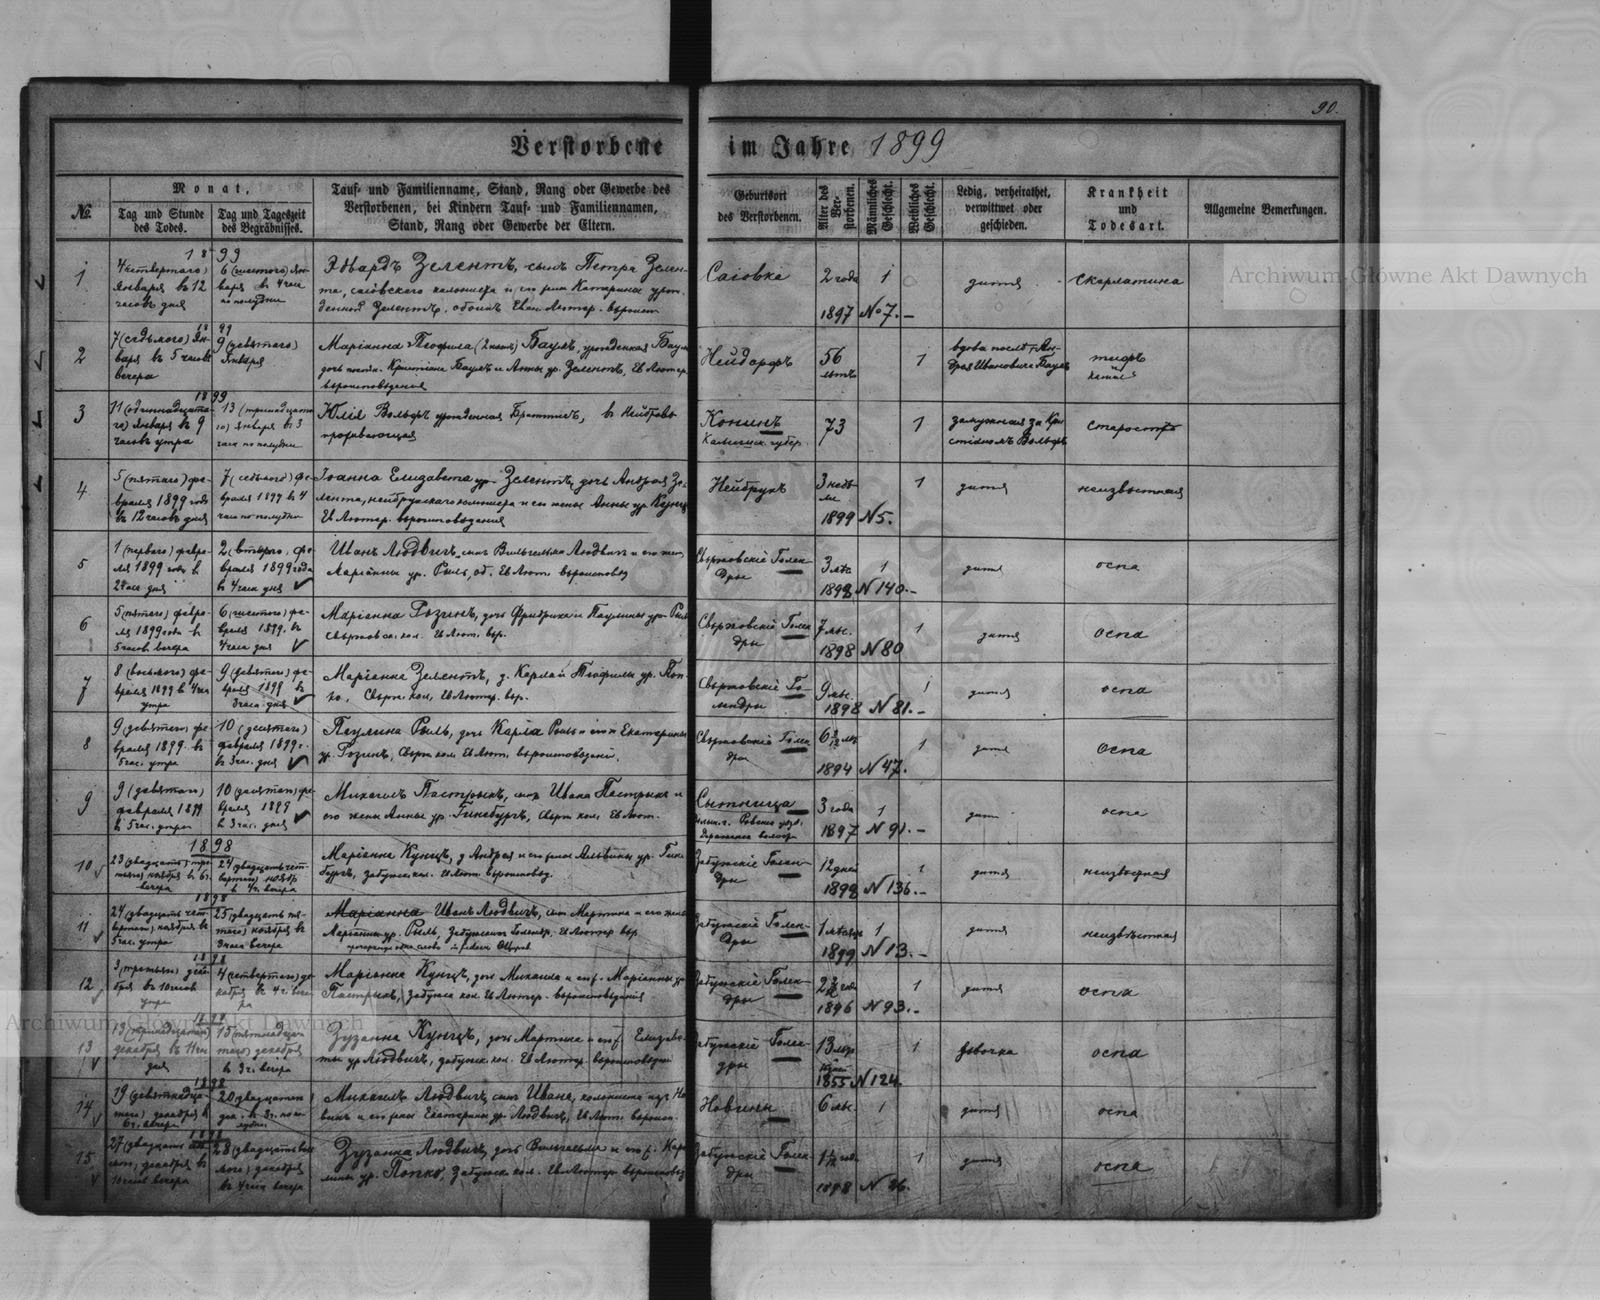 90.
Verstorbene im Jahre 1899
No.
Monat,
Tag und Stunde
des Todes.
Tag und Tageszeit
des Begräbnisses.
Tauf- und Familienname, Stand, Rang oder Gewerbe des
Verstorbenen, bei Kindern Tauf- und Familiennamen,
Stand, Rang oder Gewerbe der Eltern.
Geburtsort
des Verstorbenen.
Alter des
Ver-
storbenen.
Männliches
Geschlecht.
Weibliches
Geschlecht.
Ledig, verheirathet,
verwittwet oder
geschieden.
Krankheit
und
Todesart.
Allgemeine Bemerkungen.
1899
1
4 (четвертаго)
Января въ 12
часовъ дня
6 (шестого) Ян-
варя въ 4 часа
по полудни
Эдвардъ Зелентъ, сынъ Петра Зелен-
та, саговскаго колониста и его жены Катарины урож-
денной Зелентъ, обоихъ Еван. Лютер. вѣроисп.
Саговка
2 года
1
1897 No 7.-
дитя
Скарлатина
1899
2
7 (седьмого) Ян-
варя въ 5 часовъ
вечера
9 (девятаго)
Января
Маріанна Теофила (2 имени) Баумъ, урожденная Баумъ
дочь Кристіана Баумъ и Анны ур. Зелентъ, Ев. Лютер.
вѣроисповѣданія
Нейдорфъ
56
лѣтъ
1
вдова послѣ Ан-
дрея Ивановича Баумъ
тифъ
1899
3
11 (одиннадцата-
го) Января въ 9
часовъ утра
13 (тринадцата
го) Января въ 3
часа по полудни
Юлія Вольфъ урожденная, въ Нейбровѣ
проживающая
Конинъ
Калишск. губер.
73
1
замужная за Кри
стіаномъ Вольфъ
старость
4
5 (пятаго) фе-
враля 1899 года
въ 12 часовъ дня
7 (седьмого) Фе-
враля 1899 въ 4
часа по полудни
Іоанна Елизавета ур. Зелентъ, дочь Андрея Зе-
лента, нейбрукскаго колониста и его жены Анны ур. Кунцъ
Ев. Лютер. вѣроисповѣданія
Нейбрукъ
3 недѣ
ли
1
1899 N 5.
дитя
неизвѣстная
5
1 (перваго) февра-
ля 1899 года въ
2 часа дня
2 (второго) фе-
враля 1899 года
въ 4 часа дня
Иванъ Людвигъ, сынъ Вильгельма Людвигъ и его жены
Маріанны ур. Рыль, об. Ев. Лютер. вѣроисповѣд
Свержовскіе Голен-
дры
3 мѣс
1
1898 N 140.-
дитя
оспа
6
5 (пятаго) февра-
ля 1899 года въ
5 часовъ вечера
6 (шестого) фе-
враля 1899. въ
4 часа дня
Маріанна Розинъ, дочь Фридриха и Паулины ур. Рыль
Свержовск. кол. Ев. Лют. вѣр.
Свержовскіе Голен
дры
7 мѣс.
1
1898 N 80
дитя
оспа
7
8 (восьмого) фе-
враля 1899 въ 4 час
утра
9 (девятаго) фе-
враля 1899 въ
3 часа дня
Маріанна Зелентъ, д. Карла и Теофилы ур. Поп-
ко, Сверж. кол. Ев. Лютер. вѣр.
Свержовскіе Го-
лендры
9 мѣс.
1
1898 N 81.-
дитя
оспа
8
9 (девятаго) фе-
враля 1899. въ
5 час. утра
10 (десятаго)
февраля 1899 г.
въ 3 час. дня
Паулина Рыль, дочь Карла Рыль и его ж Екатерины
ур. Розинъ, Сверж. кол. Ев. Лют. вѣроисповѣданія.
Свержовскіе Голен
дры
1
1894 N 47.
дитя
оспа
9
9 (девятаго)
февраля 1899
въ 5 час. утра
10 (десятаго) фе-
враля 1899
въ 3 час. дня
Михаилъ Пастрыкъ, сынъ Ивана Пастрыка и
его жены Анны ур. Гинсбургъ, Сверж. кол. Ев. Лют.
Сытница
3 года
1
1897 N 91.-
дитя
оспа
1898
10
23 (двадцать тре
тьяго) ноября въ 6 ч.
вечера
24 (двадцать чет
вертаго) ноябр
въ 4 ч. вечера
Маріанна Кунцъ, д. Андрея и его жены Альвины ур. Гин-
бургъ, забужск. кол. Ев. Лют. вѣроисповѣд.
Забужскіе Голен-
дры
12 дней
1
1898 N 136.-
дитя
неизвѣстная
1898
11
24 (двадцать чет-
вертаго) ноября въ
5 час. утра
25 (двадцать пя-
таго) ноября въ
3 часа вечера
Маріанна Иванъ Людвигъ, сынъ Мартина и его жены
Маріанны ур. Рыль, Забужскихъ Голендр. Ев. Лютер. вѣр.
Забужскіе Голен-
дры
1 мѣсяцъ
1
1899 N 13.-
дитя
неизвѣстная
1898
12
3 (третьяго) дека-
бря въ 10 часовъ
утра
4 (четвертаго) де-
кабря въ 4 ч. вече-
ра
Маріанна Кунцъ, дочь Михаила и его ж. Маріанны ур.
Пастрыкъ, Забужск. кол. Ев. Лютер. вѣроисповѣданія
Забужскіе Голен-
дры
1
1896 N 93.-
дитя
оспа
13
13 (тринадцатаго)
декабря въ 11 час
дня
15 (пятнадца-
таго) декабря
въ 3 ч. вечера
Зузанна Кунцъ, дочь Мартина и его ж. Елизаве-
ты ур. Людвигъ, забужск. кол. Ев. Лютер. вѣроисповѣданія
Забужскіе Голен-
дры
1
N 124.
дѣвочка
оспа
1898
14
19 (девятнадца-
таго) декабря въ
6 ч. вечера
20 (двадцатаго)
дек. въ 3 ч. по по-
лудни
Михаилъ Людвигъ, сынъ Ивана, колониста изъ Но-
винъ и его жены Екатерины ур. Людвигъ, Ев. Лют. вѣроисп.
Новины
6 мѣс.
1
дитя
оспа
1898
15
27 (двадцать
мого) декабря въ
10 часовъ вечера
28 (двадцать вось
мого) декабря
въ 4 часа вечера
Зузанна Людвигъ, дочь Вильгельма и его ж. Каро-
лины ур. Попко, Забужск. кол. Ев. Лютер. вѣроисповѣд
Забужскіе Голен-
дры
1
1898 N 26.
дитя
оспа
Archiwum Główne Akt Dawnych
Archiwum Główne Akt Dawnych